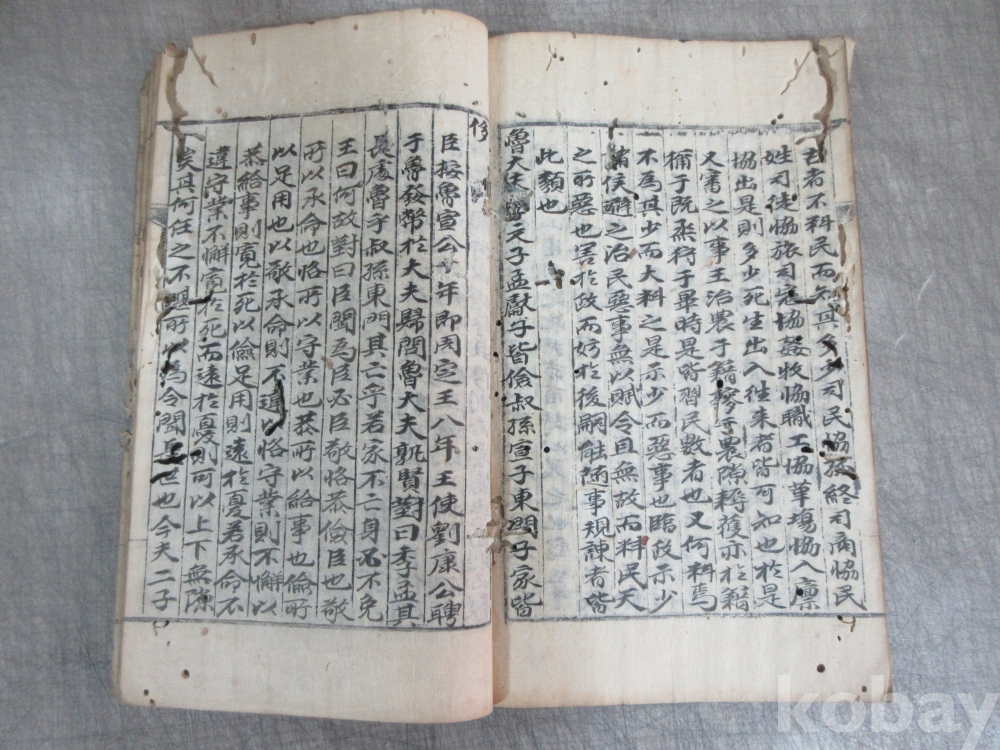 古者不料民而知其多少司民協孤終司商協民
姓司徒協旅司寇協姦牧協職工協革塲協入廩
協出是則多少死生出入徃来者皆可知也於是
又審之以事王治農于籍于農隙耨穫亦於籍
獮于旣烝狩于畢時是皆習民數者也又何料焉
不為其少而大料之是示少而惡事也臨政示少
諸侯避之治民惡事無以賦令且無故而料民天
之所惡也害於政而妨於後嗣能随事規諫者皆
此類也
魯大夫文子孟獻子皆儉叔孫宣子東門子家皆
侈
臣按魯宣公年即周定王八年王使劉康公聘
于魯發幣於大夫歸問魯大夫孰賢對曰季孟其
長處魯乎叔孫東門其亡乎若家不亡身必不免
王曰何故對曰臣聞爲臣必臣敬恪恭儉臣也敬
所以承命也恪所以守業也恭所以給事也儉所
以足用也以敬承命則不違以恪守業則不懈以
恭給事則寬於死以儉足用則遠於憂若承命不
違守業不懈寬於死而遠於憂則可以上下無隙
矣其何任之不堪所以爲令聞長世也今夫二子
kobay